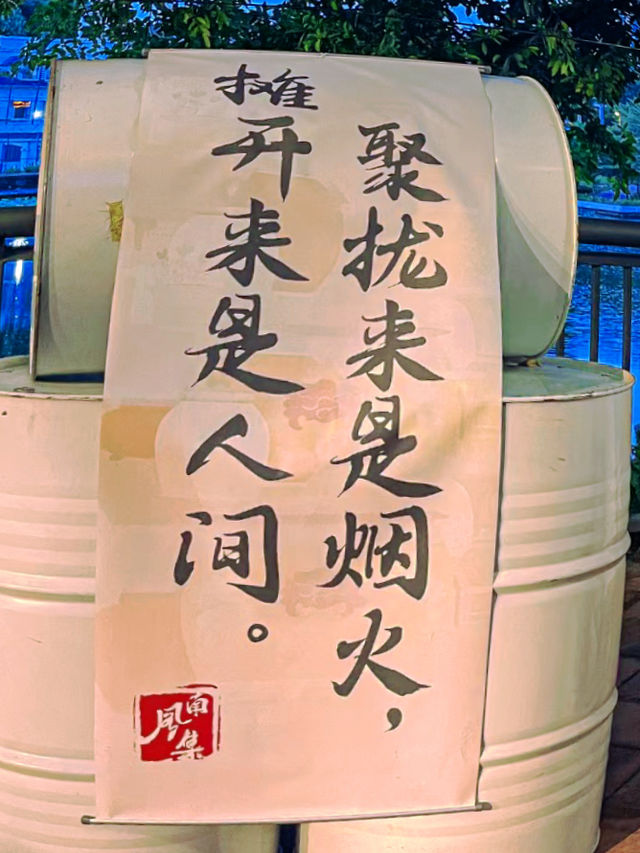 聚拢来是烟火，
摊开来是人间。
南风集